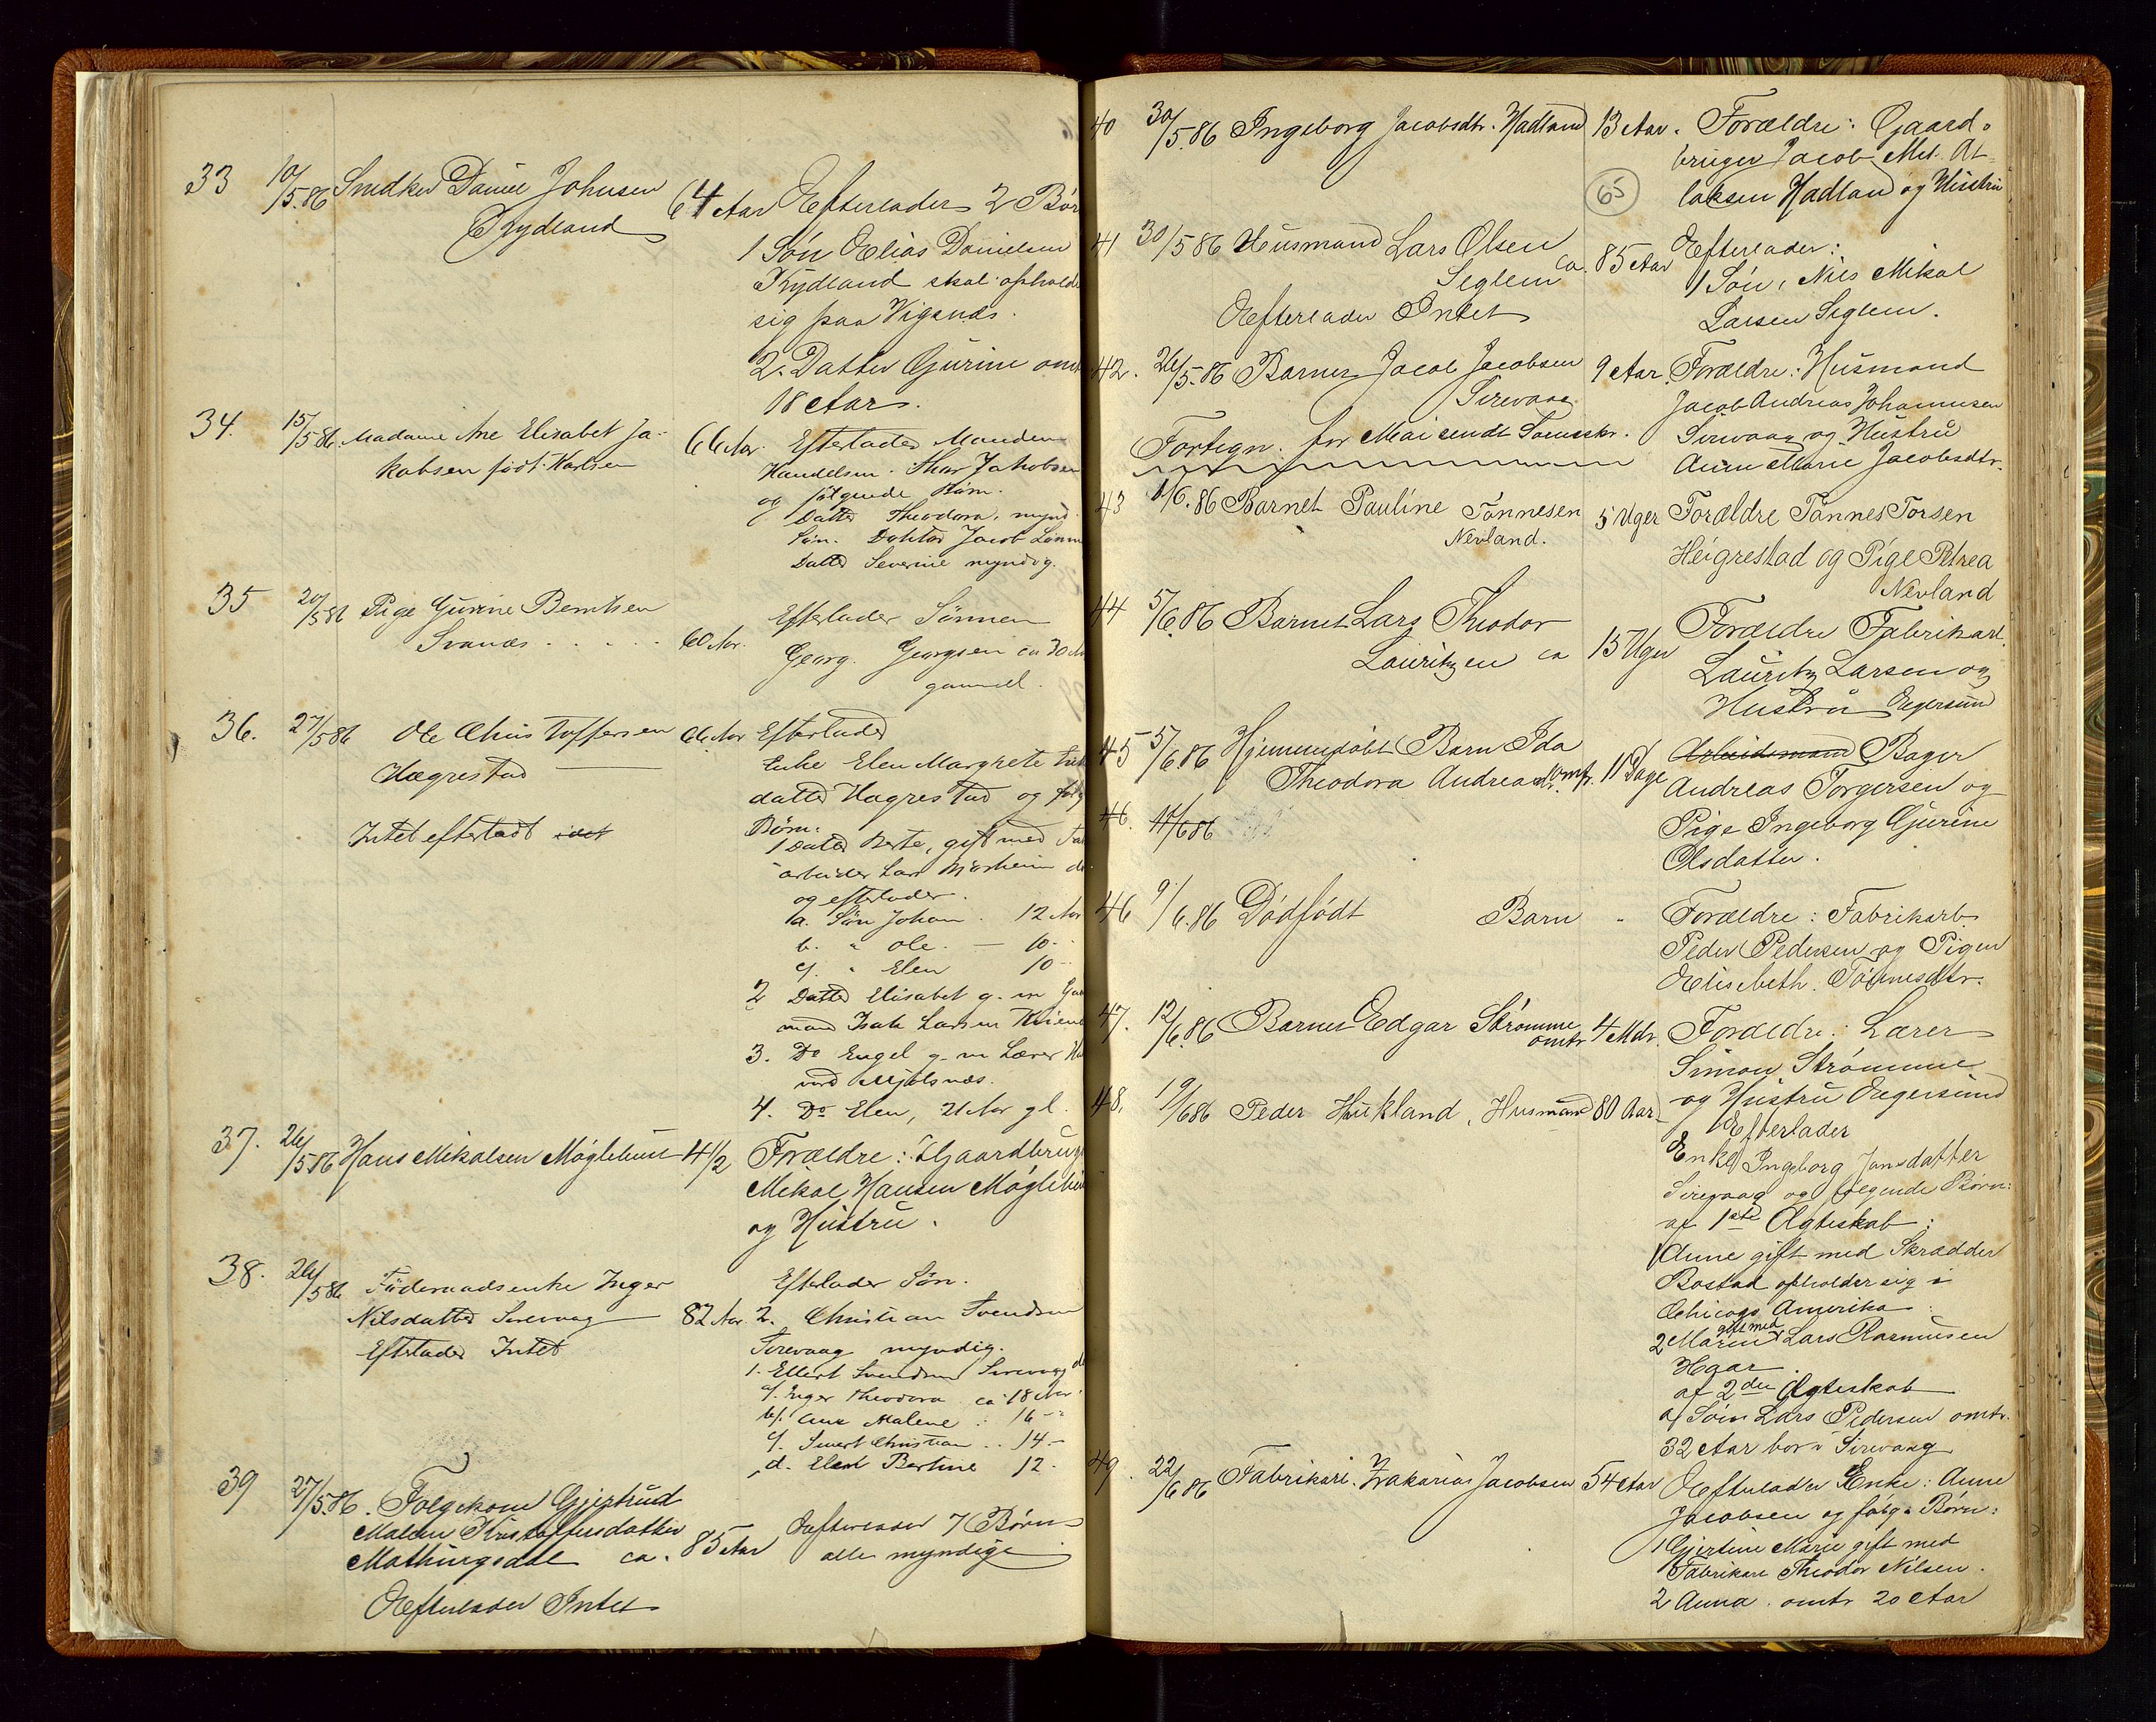 33 10/5.86 Snedker Daniel Johnsen
Rydland
64 Aar Efterlader 2 Bør
1 Søn Elias Danielsen
Rydland skal opholde
sig paa Vigsnæs.
2. Datter Gurine omt
18 Aar.
34. 15/5 86. Madame Ane Elisabet Ja-
kobsen født Karlsen
66 Aar. Efterlader Manden
Handelsm. Thor Jakobsen
og følgende Børn.
Datter Theodora, mynd.
Søn. Doktor Jacob
Datter Severine myndig.
35 20/5 86 Pige Gurine Berntsen
Svanæs . . . . . 60 Aar.
Efterlader Sønnen
Georg Georgsen ca 30 Aar
gammel.
36. 27/5 86 Ole Christoffersen
Hægrestad
66 Aar Efterlader
Enke Elen Margrete
datter Hægrestad og følg
Børn:
1 Datter Berte, gift med
arbeider Lars Mjørheim
og efterlader.
a. Søn Johan . 12 Aar
b. " Ole. — 10 -
c/. " Elen 10 -
2 Datter Elisabet g. m
mand Isak Larsen
3. Do Engel g. m Lærer
ved Mjølsnæs.
4. Do Elen, Aar gl.
Intet efterladt
37. 26/5 86 Hans Mikalsen Møglebust 4 1/2
Forældre: Gaardbrug
Mikal Hansen Møglebu
og Hustru.
38. 26/5 86 Føderaadsenke Inger
Nilsdatter Sirevaag 82 Aar.
Efterlader Intet
Efterlader Søn.
2. Christian Svendsen
Sirevaag myndig.
1. Ellert Svendsen Sirevaag
a/. Inger Theodora ca 18 Aar.
b/. Ane Malene : 16 -
c/. Sivert Christian .. 14 -
d. Elen Bertine 12 -
39 27/5.86. Følgekone Gjertrud
Malene Kristoffersdatter
Mathingsdal ca. 85 Aar
Efterlader Intet
Efterlader 7 Børn
alle myndige
40 30/5.86 Ingeborg Jacobsdtr. Hadland 13 Aar.
Forældre: Gaard-
bruger Jacob Mel. At-
laksen Hadland og Hustru
65
41 30/5 86 Husmand Lars Olsen
Seglem ca. 85 Aar
Efterlader Intet
Efterlader:
1 Søn, Nils Mikal
Larsen Seglem.
42. 26/5.86 Barnet Jacob Jacobsen
Sirevaag. 9 Aar.
Forældre: Husmand
Jacob Andreas Johannesen
Sirevaag og Hustru
Anne Marie Jacobsdtr.
Fortegn. for Mai sendt Sorensskr.
43 1/6.86 Barnet Pauline Tønnesen
Nevland. 5 Uger
Forældre Tønnes Torsen
Heigrestad og Pige Petrea
Nevland
44 5/6.86 Barnet Lars Theodor
Lauritzen ca 15 Uger
Forældre Fabrikarb.
Lauritz Larsen og
Hustru Egersund
45 5/6.86 Hjemmedøbt Barn Ida
Theodora Andreasdtr. omtr. 11 Dage
Arbeidsmand Bager
Andreas Torgersen og
Pige Ingeborg Gurine
Olsdatter.
46. 11/6 86
46 9/6.86 Dødfødt Barn "
Forældre: Fabrikarb.
Peder Pedersen og Pigen
Elisebeth Tønnesdtr.
47. 12/6.86 Barnet Edgar Strømme
omtr 4 Mdr.
Forældre: Lærer
Simon Strømme
og Hustru Egersund
48. 19/6 86 Peder Hukland, Husmand 80 Aar
Efterlader
Enke Ingeborg Jansdatter
Sirevaag og følgende Børn:
af 1ste Ægteskab:
1 Anne gift med Skrædder
Bostad opholder sig i
Chicago Amerika
2 Maren gift med Lars Rasmusen
Haar
af 2det Ægteskab
a/ Søn Lars Pedersen omtr.
32 Aar bor i Sirevaag
49. 22/6 86 Fabrikarb. Zakarias Jacobsen 54 Aar
Efterlader Enke: Anne
Jacobsen og følg. Børn:
1 Gjertine Marie gift med
Fabrikarb. Theodor Nilsen.
2 Anna omtr 20 Aar